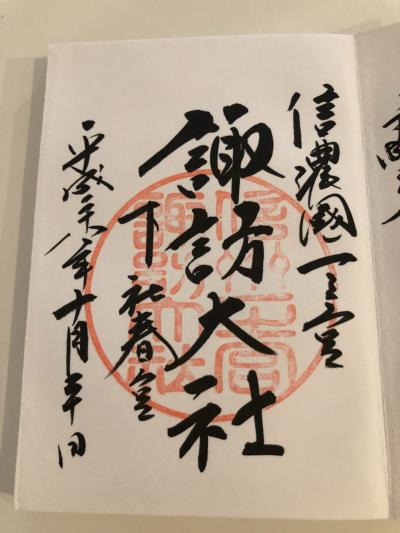 信濃國一之宮
諏訪大社
下社春宮
平成二十八年十月 日